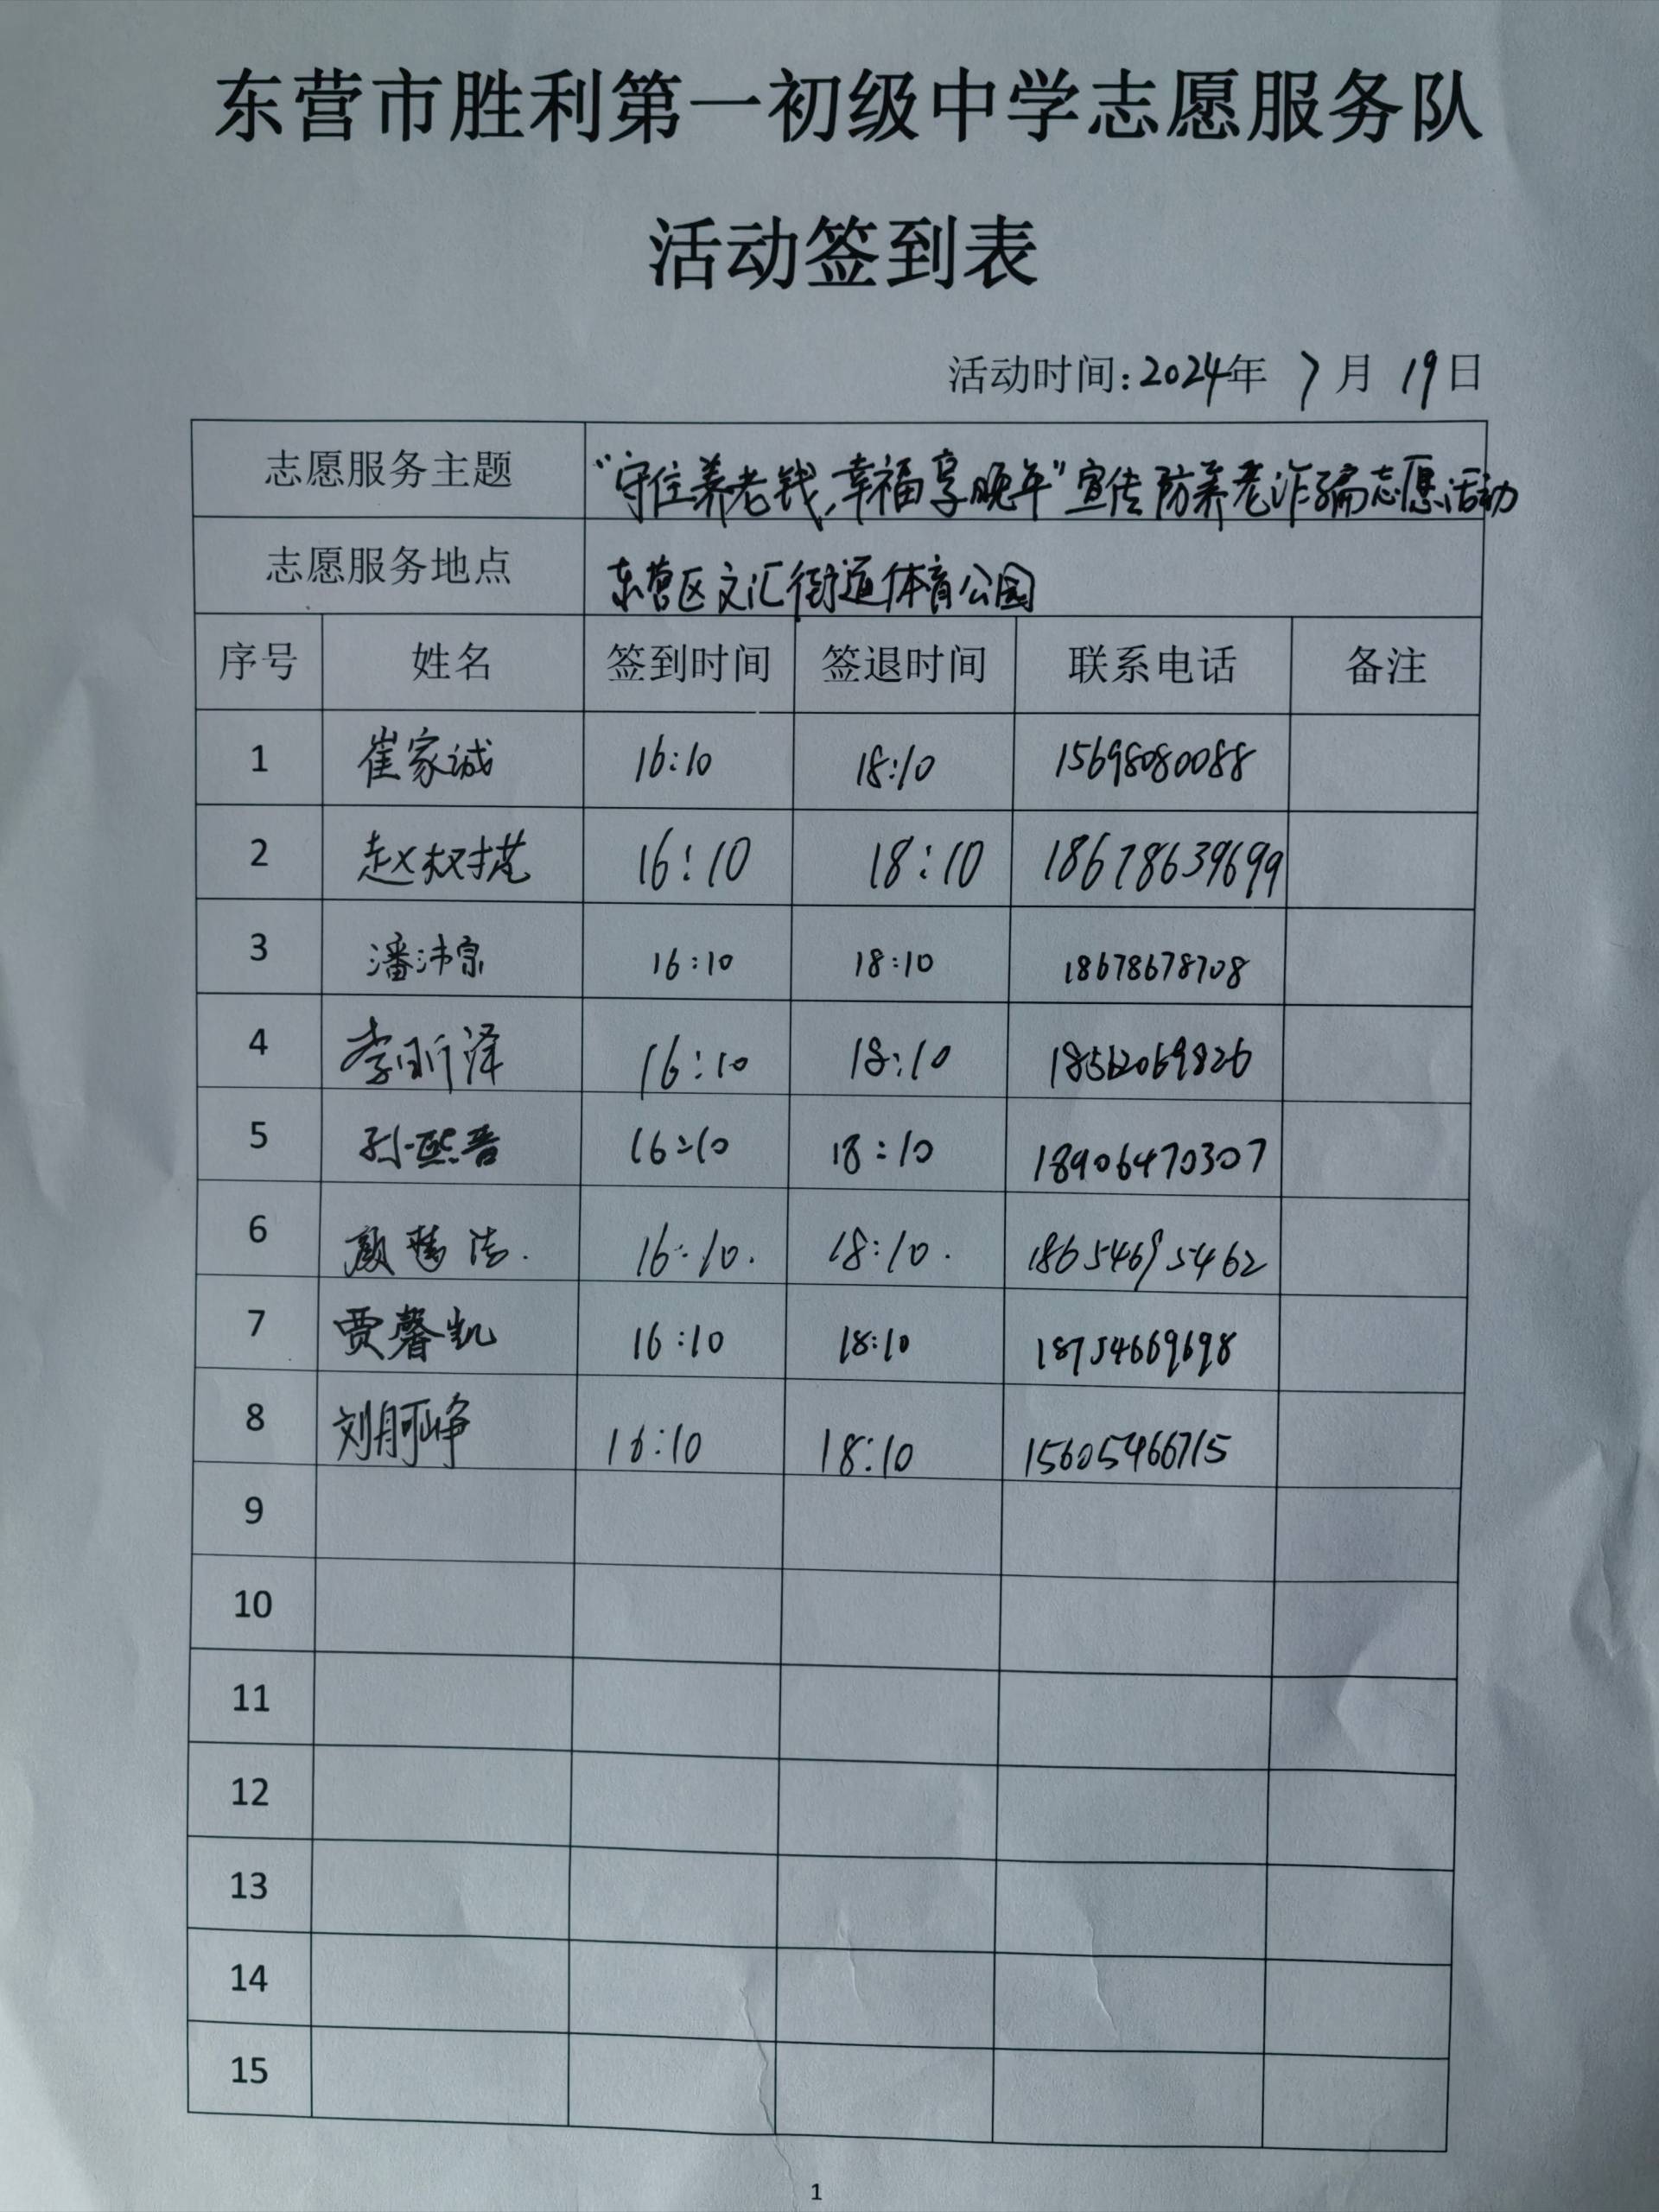 东营市胜利第一初级中学志愿服务队
活动签到表
活动时间:2024年 7月 19日
志愿服务主题 “守住养老钱,幸福享晚年”宣传防养老诈骗志愿活动
志愿服务地点 东营区文汇街道体育公园
序号 姓名 签到时间 签退时间 联系电话 备注
1 崔家诚 16:10 18:10 15698080088
2 赵权 16:10 18:10 18678639699
3 潘沛宗 16:10 18:10 18678678708
4 李昕泽 16:10 18:10 18562069826
5 孙熙晋 16:10 18:10 18906470307
6 颜 16:10. 18:10. 18654695462
7 贾馨凯 16:10 18:10 18754669698
8 刘 峥 16:10 18:10 15605466715
9
10
11
12
13
14
15
1